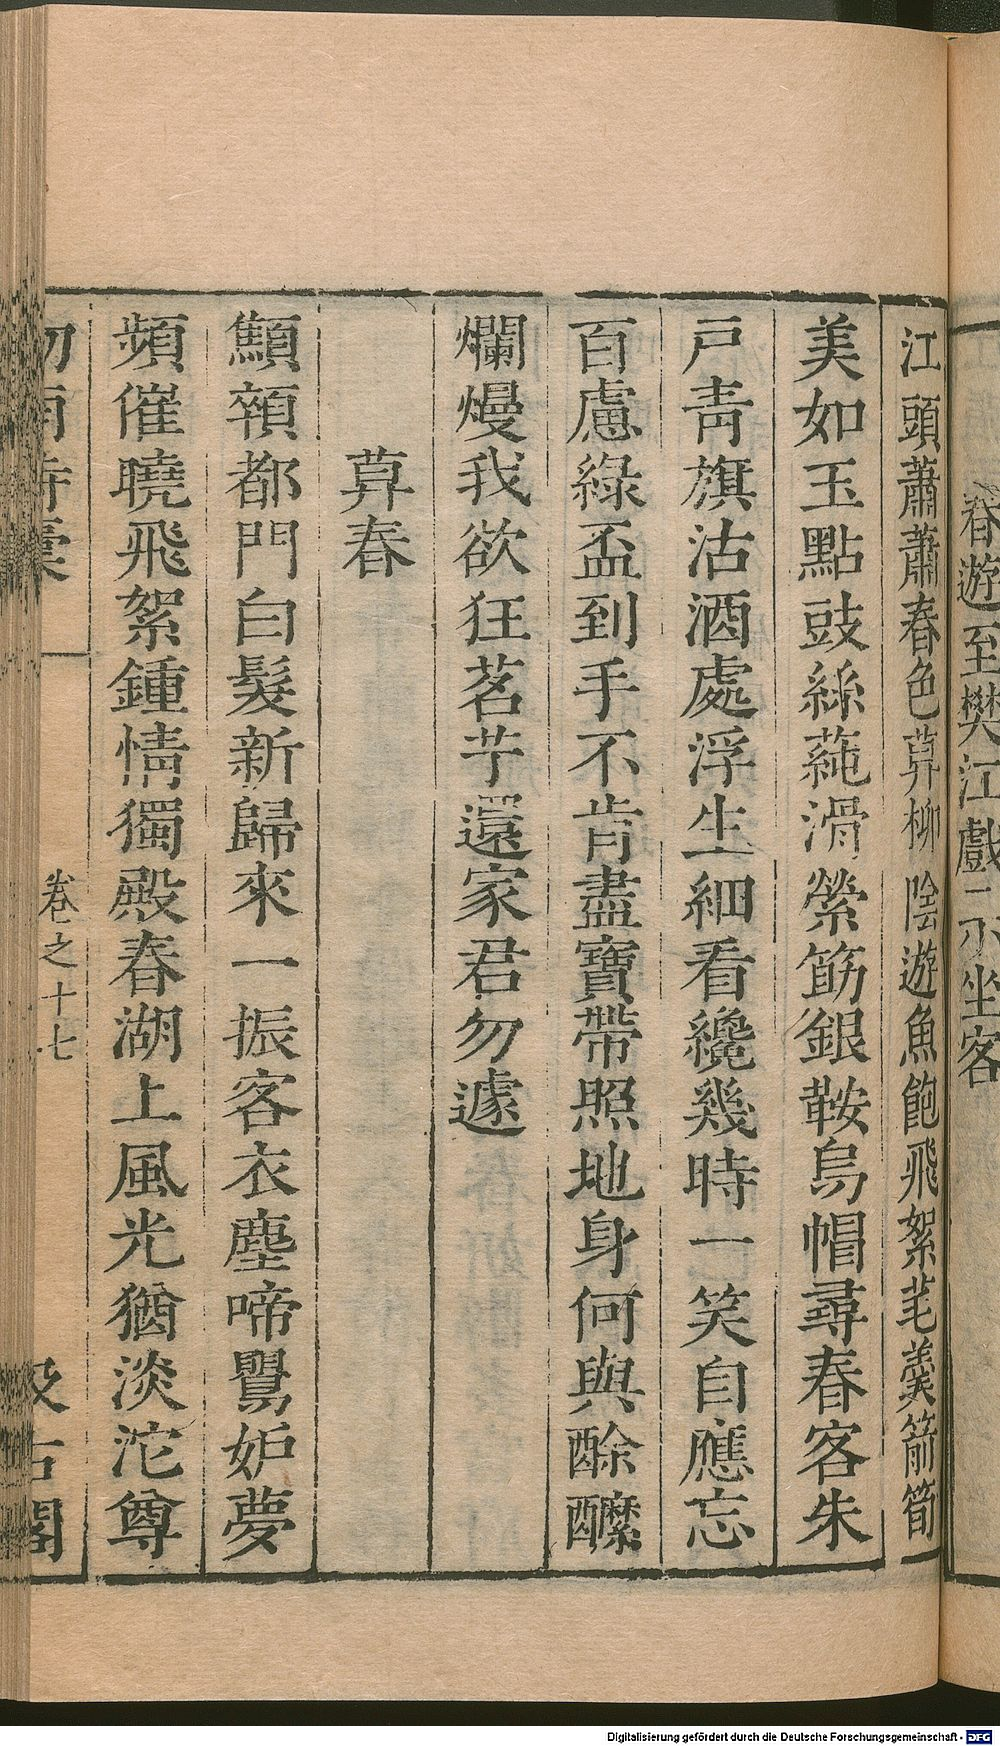 春遊至樊江戲示坐客
江頭蕭蕭春色莫柳陰遊魚飽飛絮芼羹箭筍
美如玉點豉絲蓴滑縈筯銀鞍烏帽尋春客朱
戸青旗沽酒處浮生細看纔幾時一笑自應忘
百慮綠盃到手不肯盡寶帶照地身何與酴醾
爛熳我欲狂茗艼還家君勿遽
莫春
顦顇都門白髮新歸來一振客衣塵啼鸎妒夢
頻催曉飛絮鍾情獨殿春湖上風光猶淡沱尊
卷之十七
古閣
Digitalisierung gefördert durch die Deutsche Forschungsgemeinschaft - DFG